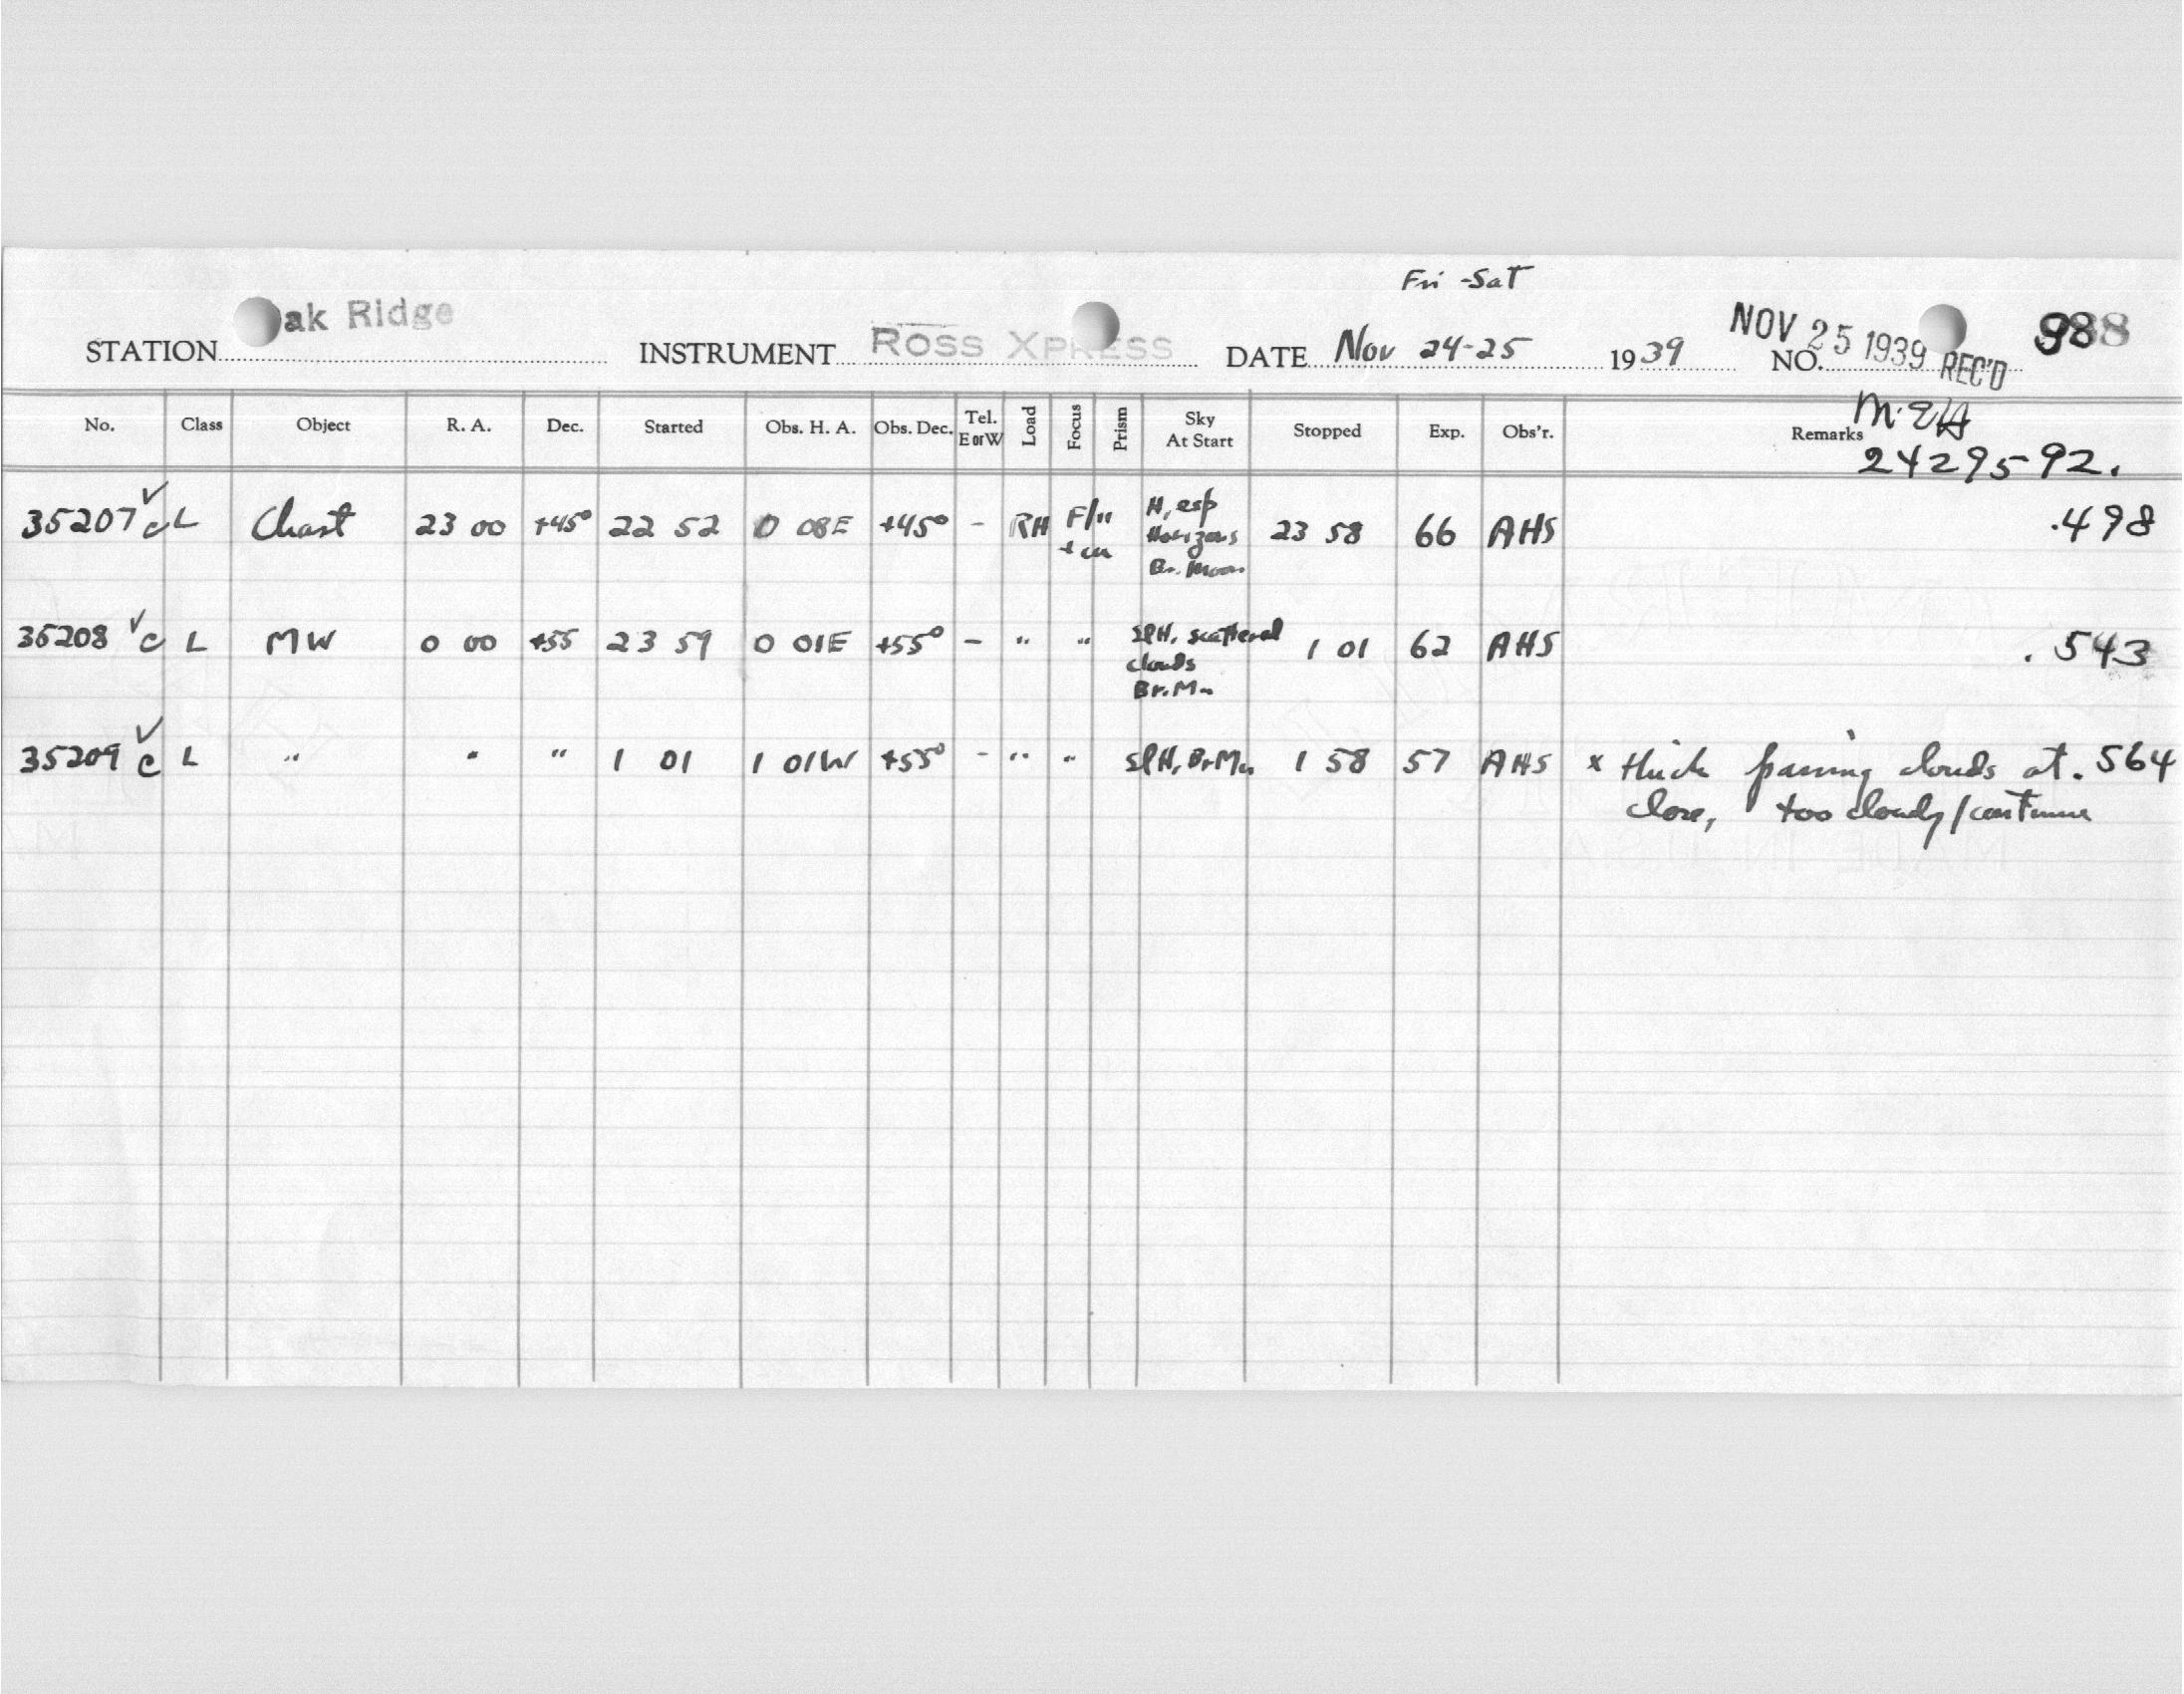 Fri - Sat
STATION Oak Ridge INSTRUMENT ROSS XPRESS DATE Nov 24-25 1939 NO. NOV 25 1939 REC'D 988
No. Class Object R. A. Dec. Started Obs. H. A. Obs. Dec. Tel. E or W Load Focus Prism Sky At Start Stopped Exp. Obs'r. Remarks
2429592.
35207 ✓ c L Chart 23 00 +45° 22 52 0 08E +45° - RH H, esp 23 58 66 AHS .498
Horizons
Br. Moon
35208 ✓ c L MW 0 00 +55 23 59 0 01E +55° - " " SlH, scattered 1 01 62 AHS .543
clouds
Br. Mn
35209 ✓ c L " " " 1 01 1 01W +55° - " " SlH, Br Mn 1 58 57 AHS x thick passing clouds at .564
close, too cloudy / continue